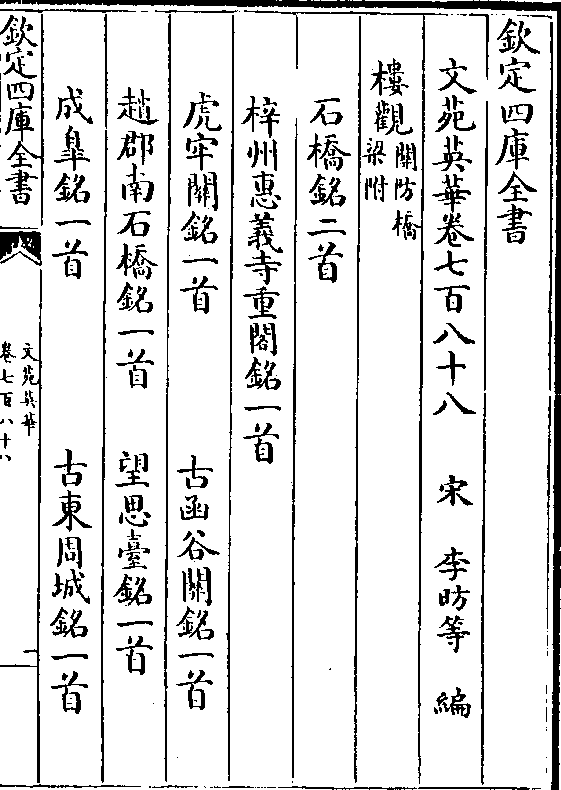 欽定四庫全書
文苑英華卷七百八十八 宋 李昉等 編
樓觀 關防橋梁附
石橋銘二首
梓州惠義寺重閣銘一首
虎牢關銘一首 古函谷關銘一首
趙郡南石橋銘一首 望思臺銘一首
成臯銘一首 古東周城銘一首
欽定四庫全書
文苑英華
卷七百八十八
一